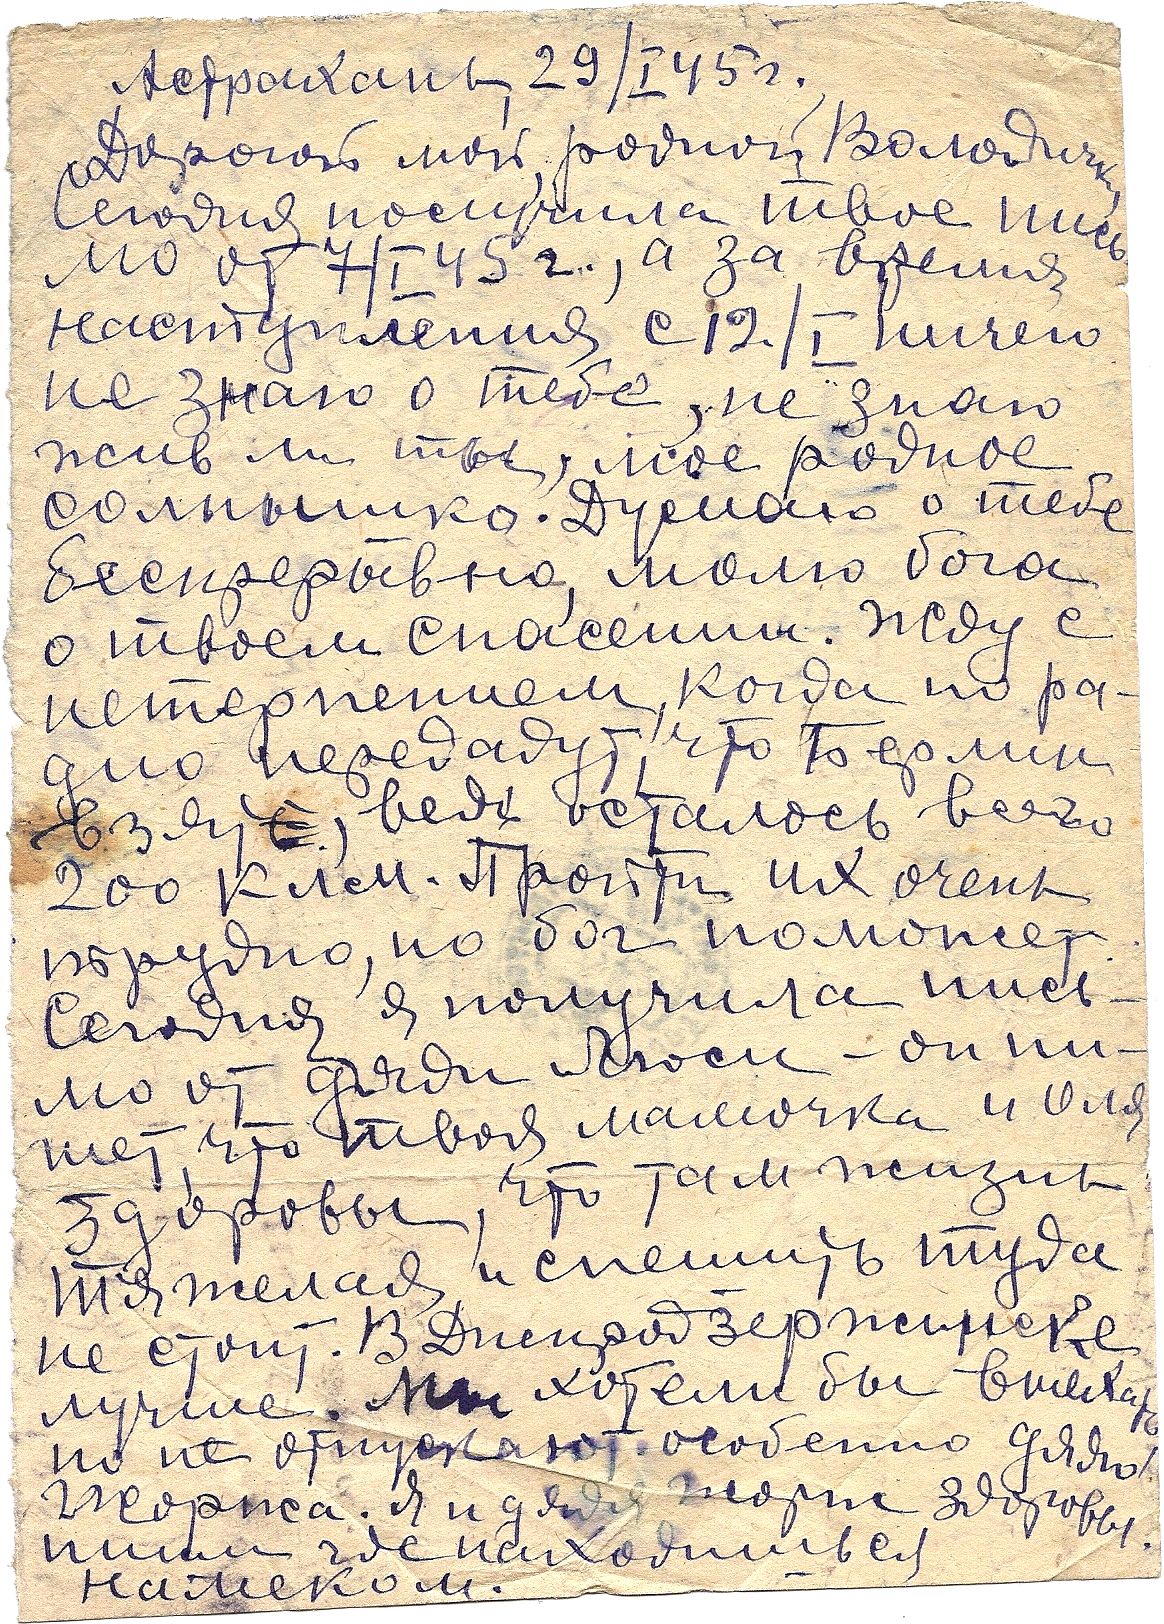 Астрахань, 29/I 45 г.
Дорогой мой, родной Володичка,
Сегодня получила твое пись
мо от 7/I 45 г., а за время
наступления с 12./I ничего
не знаю о тебе, не знаю
жив ли ты, мое родное
солнышко. Думаю о тебе
бесперывно, молю бога
о твоем спасении. Жду с
нетерпением, когда по ра-
дио передадут, что Берлин
взят, ведь осталось всего
200 клм. Пройти их очень
трудно, но бог поможет.
Сегодня я получила пись-
мо от дяди Люси - он пи-
шет, что твоя мамочка и Оля
здоровы, что там жизнь
тяжелая и спешить туда
не стоит. В Днепродзержинске
лучше. Мы хотели бы выехать
но не отпускают особенно дядю
Жоржа. Я и дядя Жорж здоровы.
пиши где находишься
намеком.